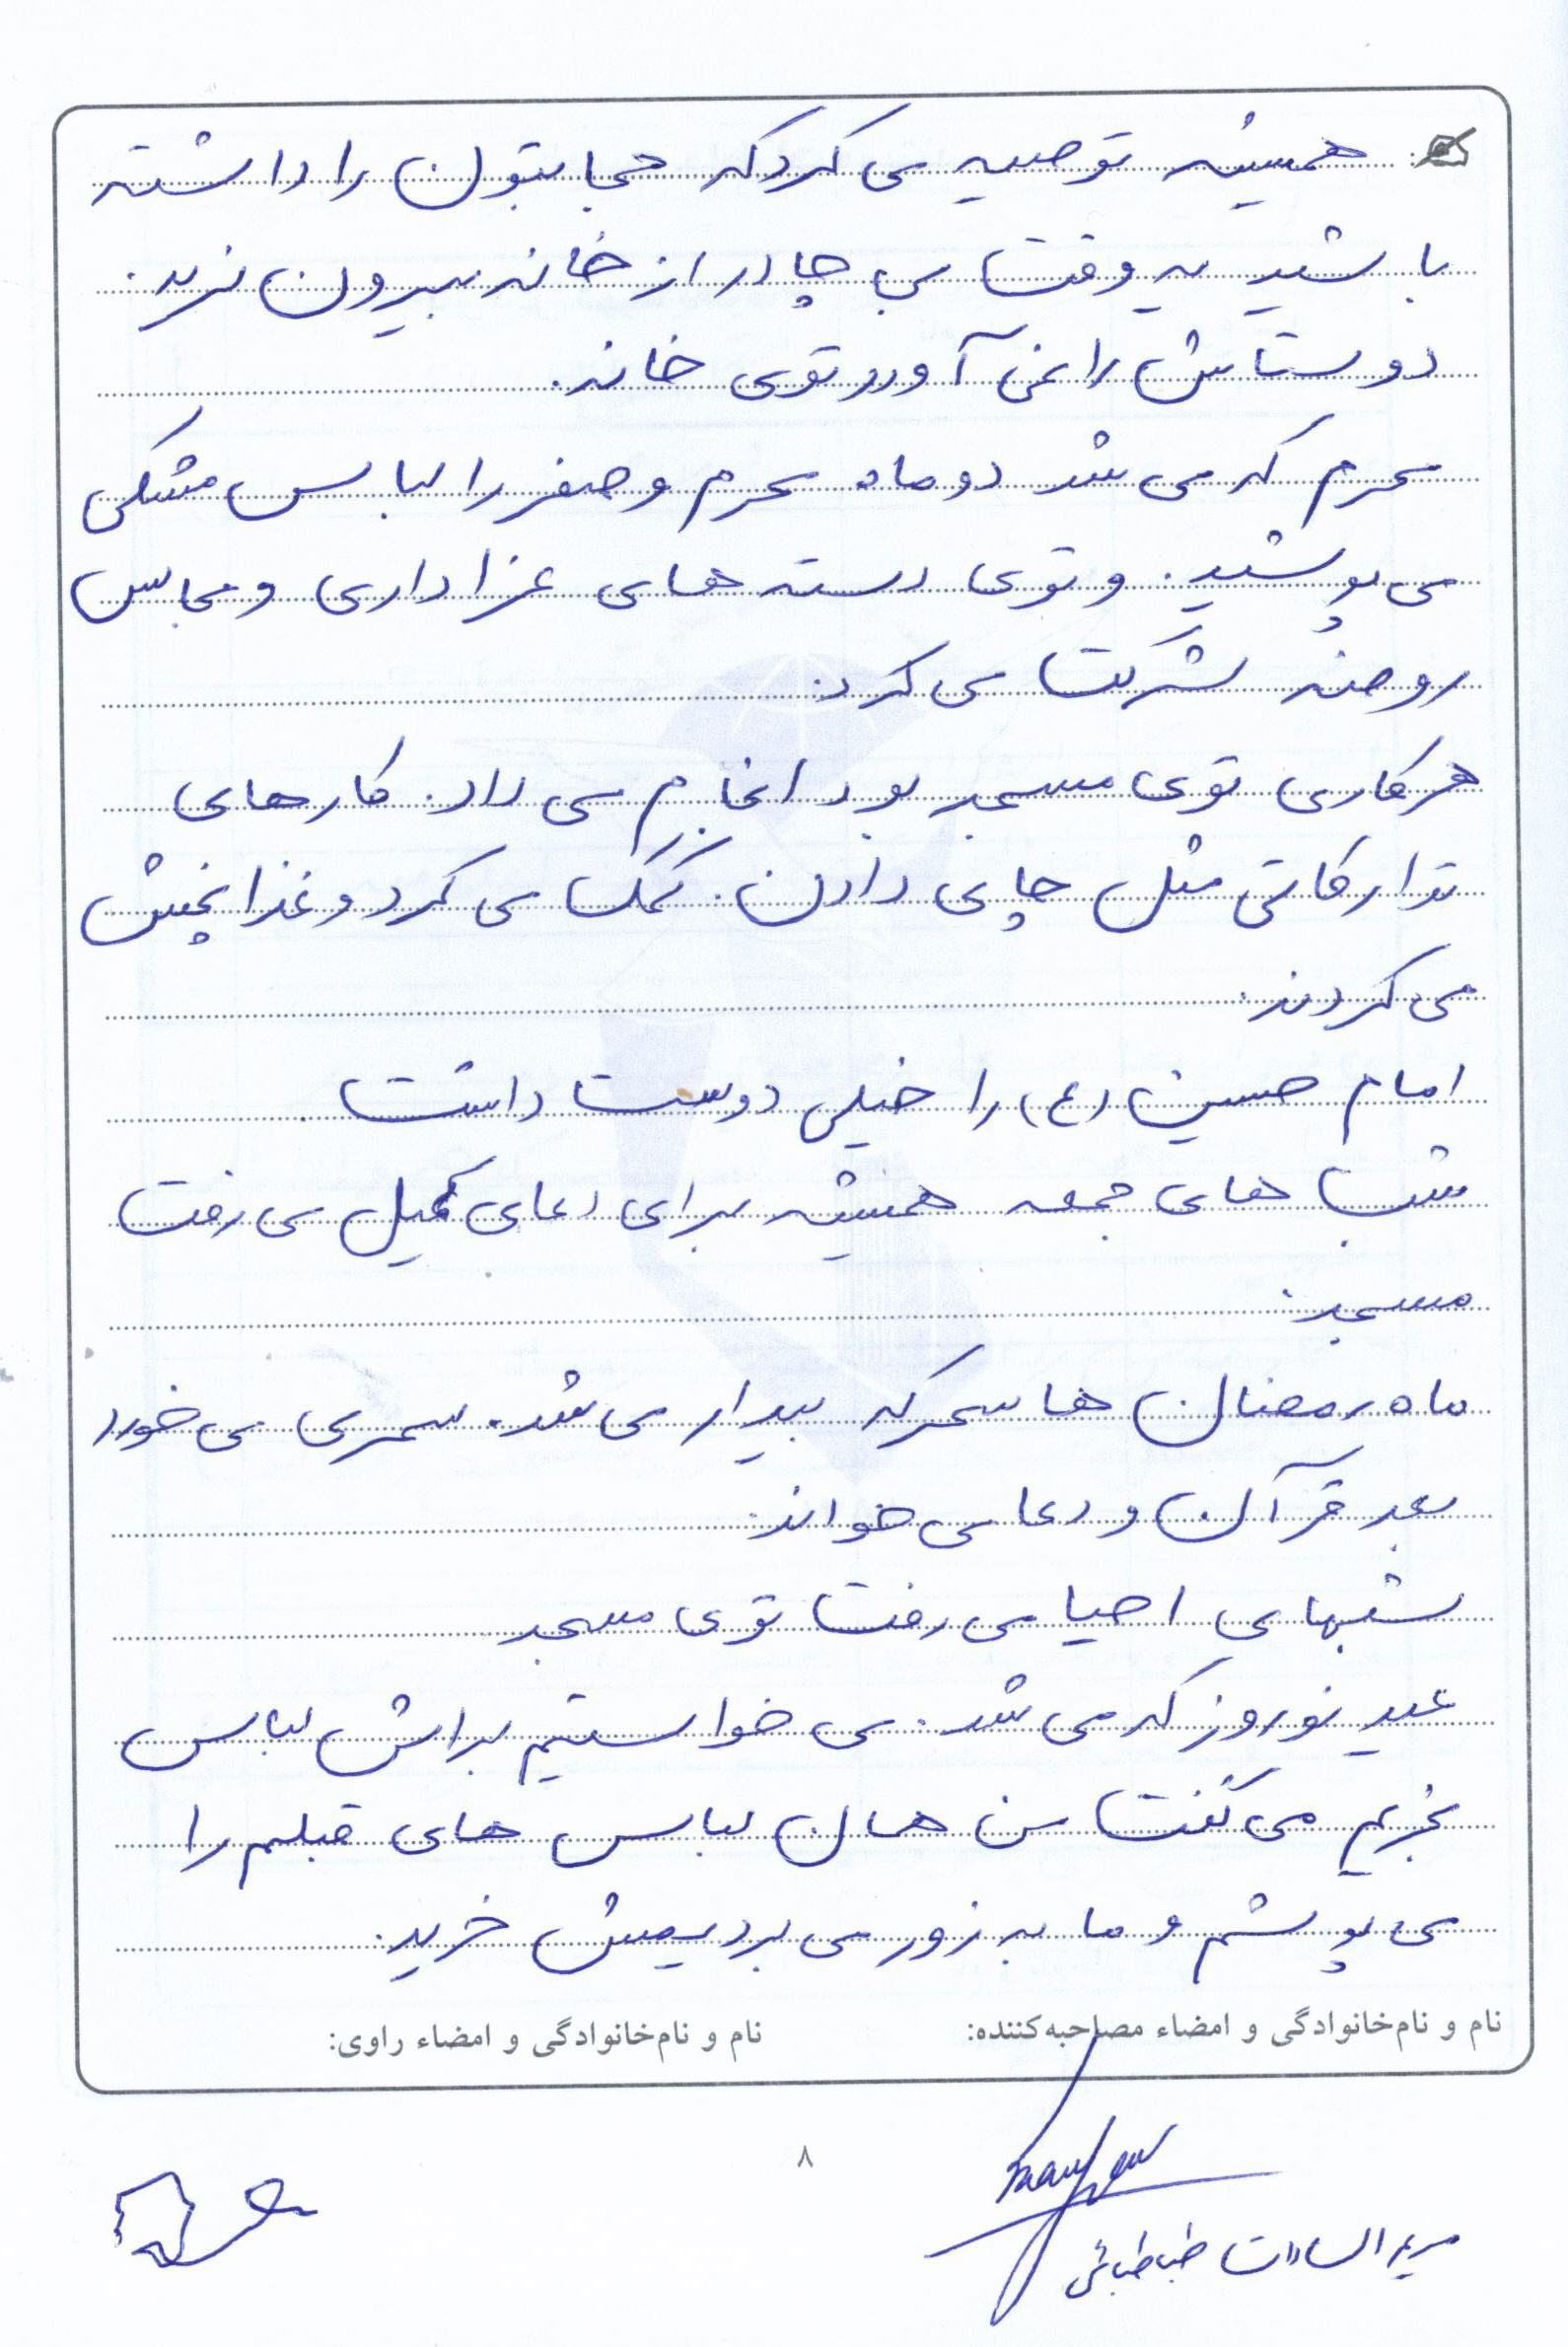 همیشه توصیه می کرد که حجابتون را داشته
باشید یه وقت بی چادر از خانه بیرون نرید.
دوستاش را نمی آورد توی خانه.
محرم که می شد دو ماه محرم و صفر را لباس مشکی
می پوشید. و توی دسته های عزاداری و مجالس
روضه شرکت می کرد.
هرکاری توی مسجد بود انجام می داد. کارهای
تدارکاتی مثل چای دادن. کمک می کرد و غذا پخش
می کردند.
امام حسین (ع) را خیلی دوست داشت.
شب های جمعه همیشه برای دعای کمیل می رفت
مسجد.
ماه رمضان ها سحر که بیدار می شد. سحری می خورد
بعد قرآن و دعا می خواند.
شبهای احیا می رفت توی مسجد
عید نوروز که می شد. می خواستیم براش لباس
بخریم می گفت من همان لباس های قبلیم را
می پوشم و ما به زور می بردیمش خرید.
نام و نام‌خانوادگی و امضاء مصاحبه‌کننده:
نام و نام‌خانوادگی و امضاء راوی:
۸
مریم السادات طباطبائی